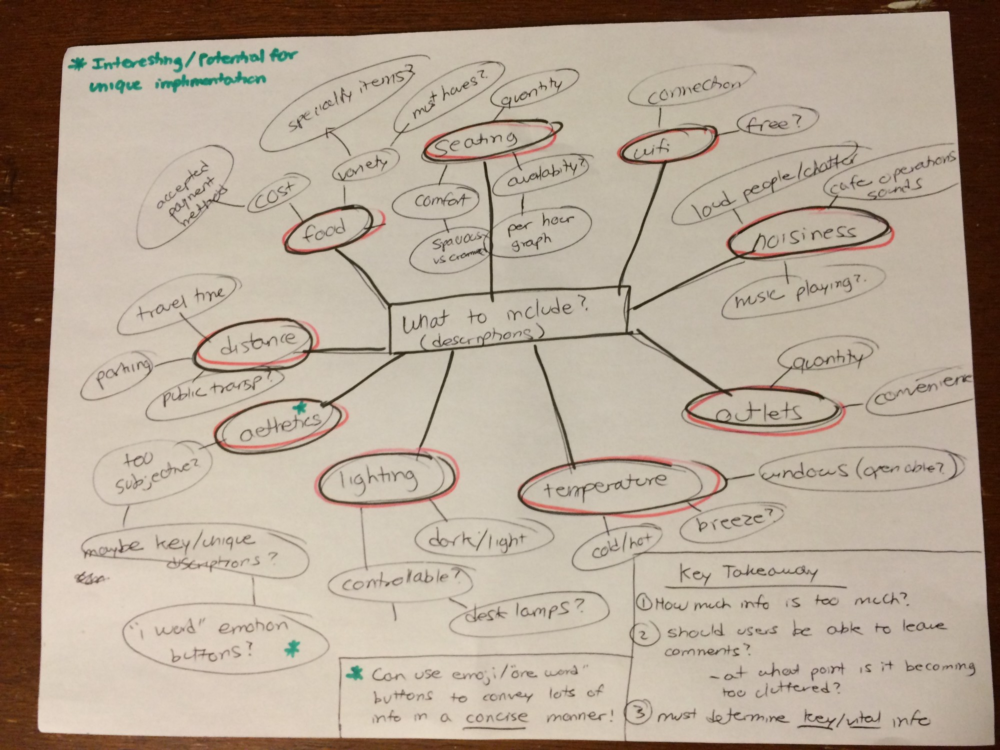 * Interesting/Potential for
unique implimentation
specially items?
must haves?
quantity
connection
free?
Seating
wifi
variety
availability?
accepted
payment
methods
cost
food
comfort
spacious
vs cramped
per hour
graph
loud people/chatter
cafe operations
sounds
noisiness
music playing?
travel time
distance
parking
public transp?
What to include?
(descriptions)
quantity
outlets
convenienc
aethetics *
too
subjective?
lighting
temperature
windows (openable?)
breeze?
cold/hot
dark/light
maybe key/unique
discriptions?
controllable?
desk lamps?
"1 word" emotion
buttons? *
* Can use emoji/"one word"
buttons to convey lots of
info in a concise manner!
Key Takeaway
① How much info is too much?
② should users be able to leave
comments?
- at what point is it becoming
too cluttered?
③ must determine key/vital info